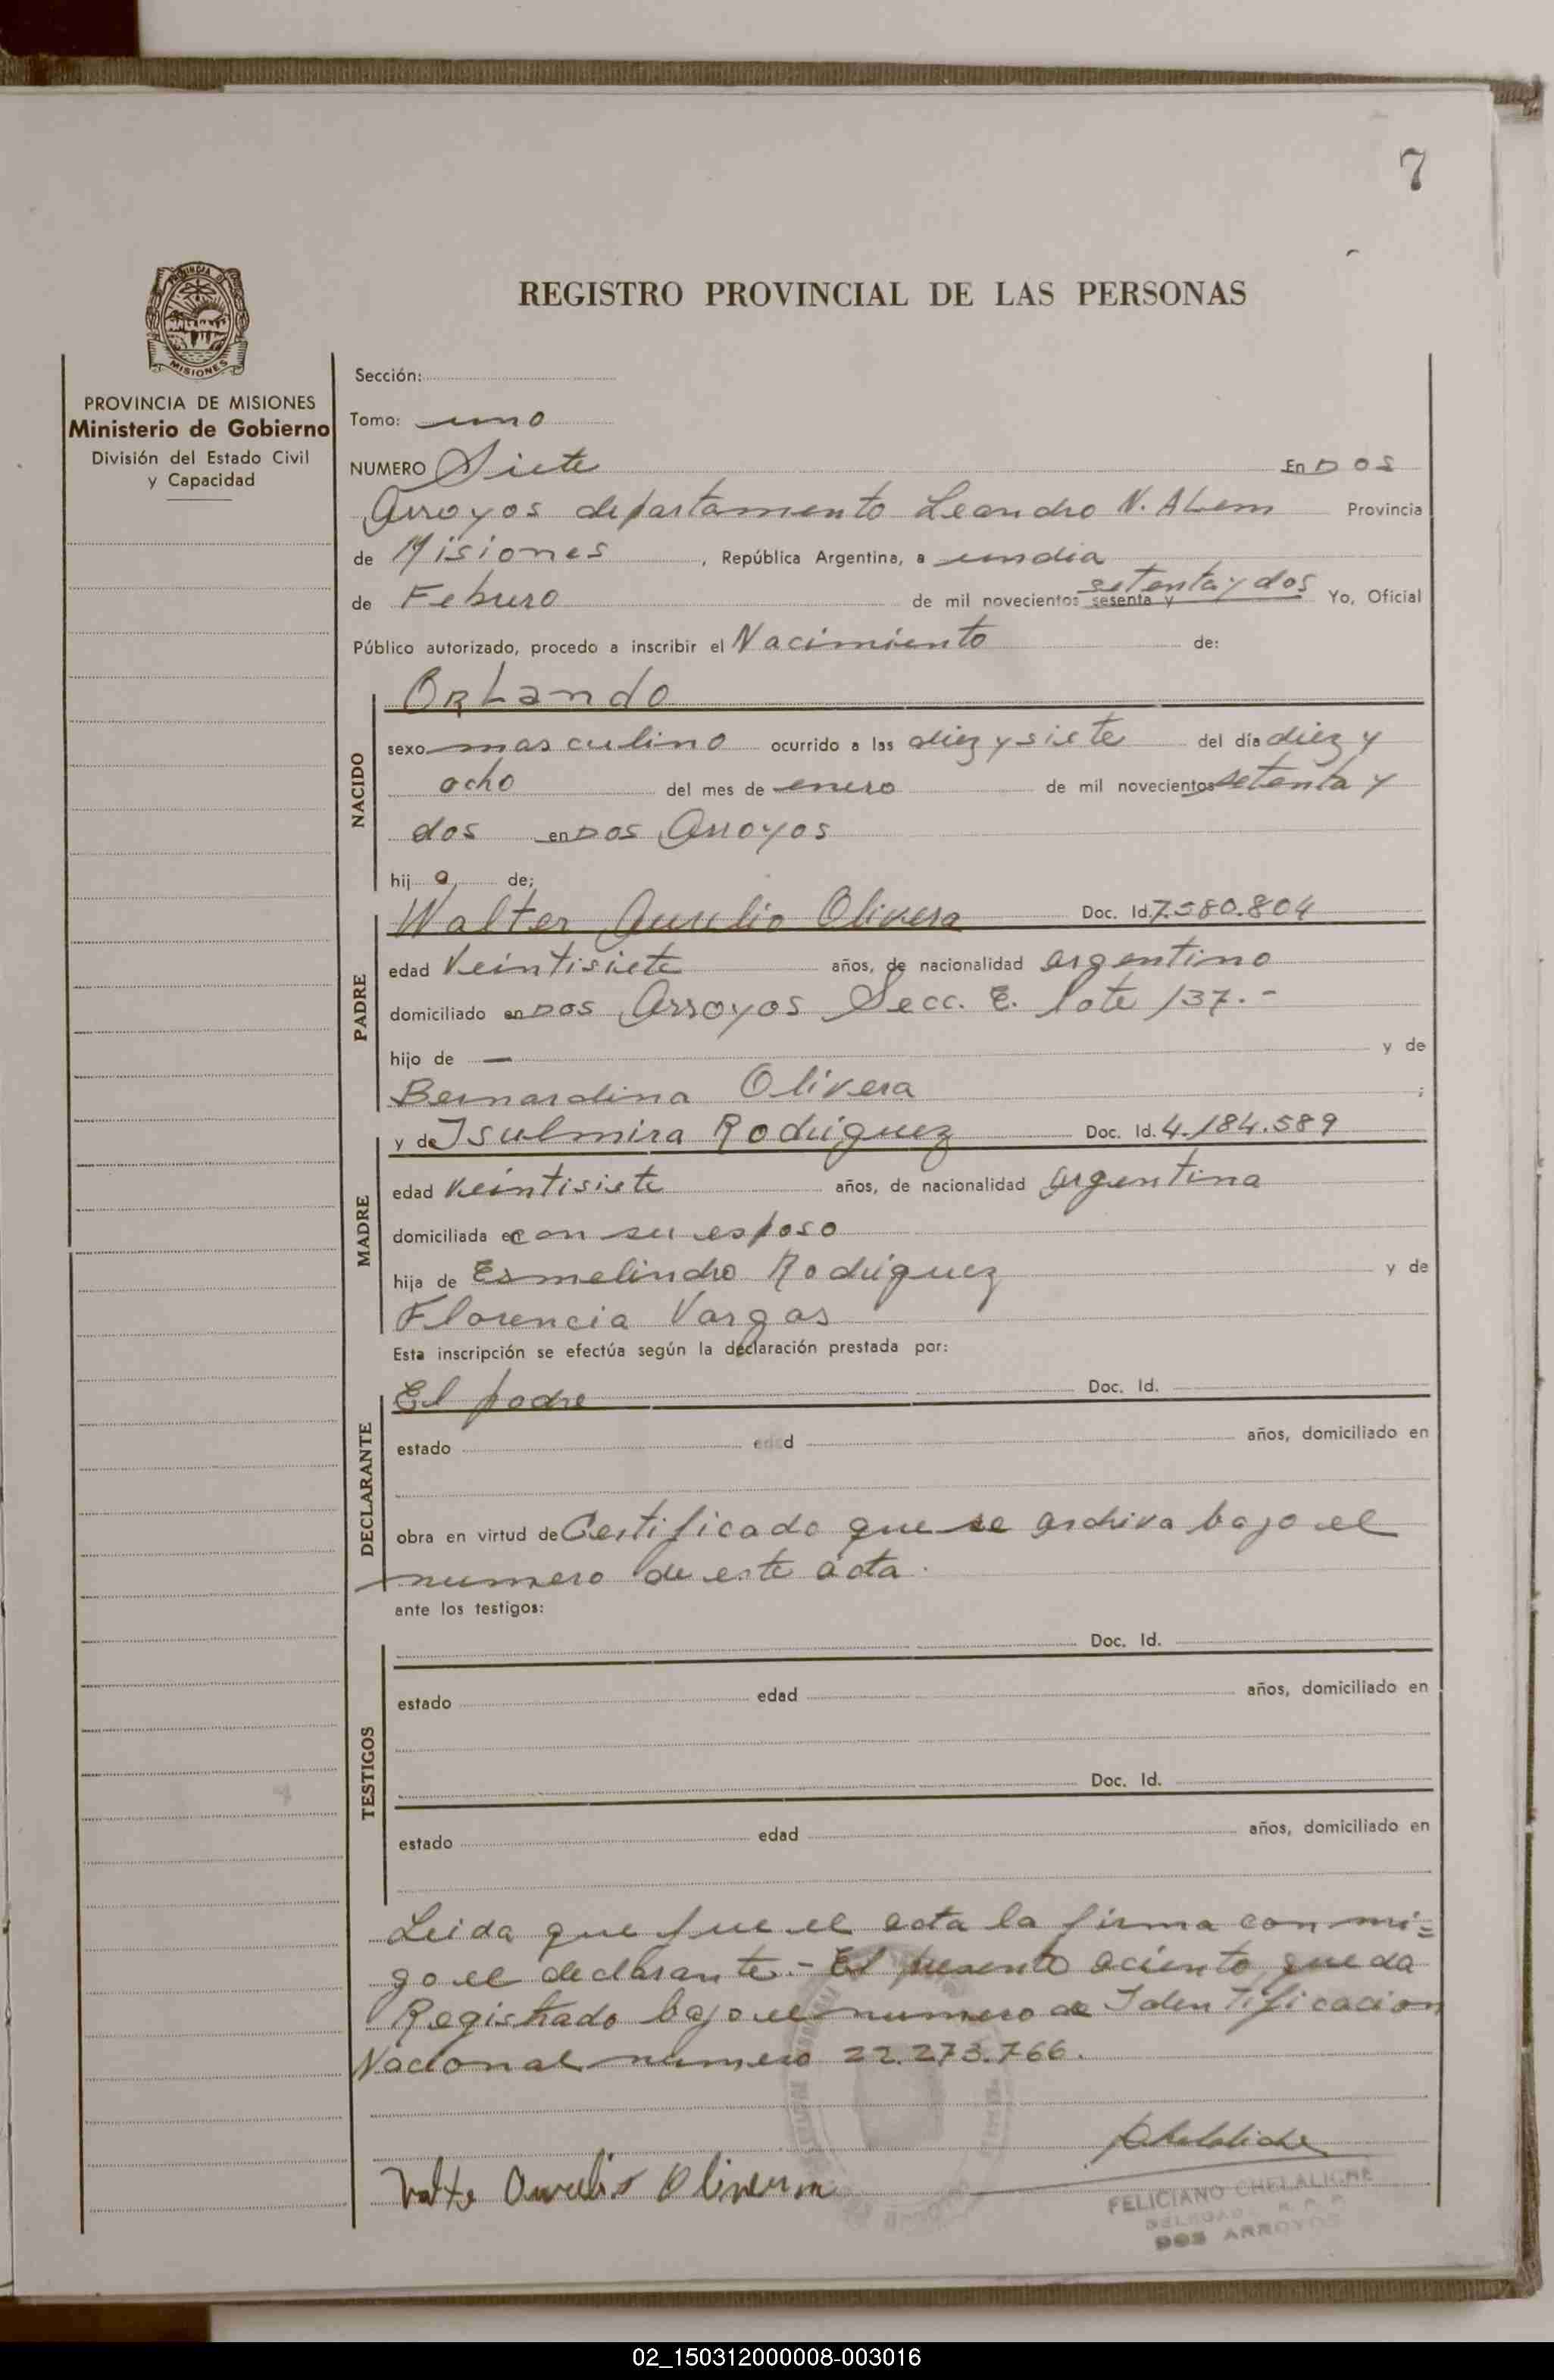 7
REGISTRO PROVINCIAL DE LAS PERSONAS
PROVINCIA DE MISIONES
Ministerio de Gobierno
División del Estado Civil
y Capacidad
Sección:
Tomo: uno
NUMERO Siete En Dos
Arroyos departamento Leandro N. ALem Provincia
de Misiones, República Argentina, a un dia
de Febrero de mil novecientos sesenta y setenta y dos Yo, Oficial
Público autorizado, procedo a inscribir el Nacimiento de:
NACIDO
ORLando
sexo masculino ocurrido a las diez y siete del día diez y
ocho del mes de enero de mil novecientos setenta y
dos en Dos Arroyos
hij o de;
PADRE
Walter Aurelio Olivera Doc. Id. 7.580.804
edad veintisiete años, de nacionalidad argentino
domiciliado en Dos Arroyos Secc. E. lote 137.-
hijo de — y de
Bernardina Olivera ;
MADRE
y de Isulmira Rodriguez Doc. Id. 4.184.589
edad veintisiete años, de nacionalidad argentina
domiciliada en con su esposo
hija de Esmelindro Rodriguez y de
Florencia Vargas
Esta inscripción se efectúa según la declaración prestada por:
DECLARANTE
El padre Doc. Id.
estado edad años, domiciliado en
obra en virtud de Certificado que se archiva bajo el
numero de este acta.
ante los testigos:
TESTIGOS
Doc. Id.
estado edad años, domiciliado en
Doc. Id.
estado edad años, domiciliado en
Leida que fue el acta la firma con mi=
go el declarante.- El presente aciento queda
Registrado bajo el numero de Identificacion
Nacional numero 22.273.766.
Walte Aurelio Olivera
FELICIANO CHELALICHE
DELEGADO R. P. P.
DOS ARROYOS
02_150312000008-003016